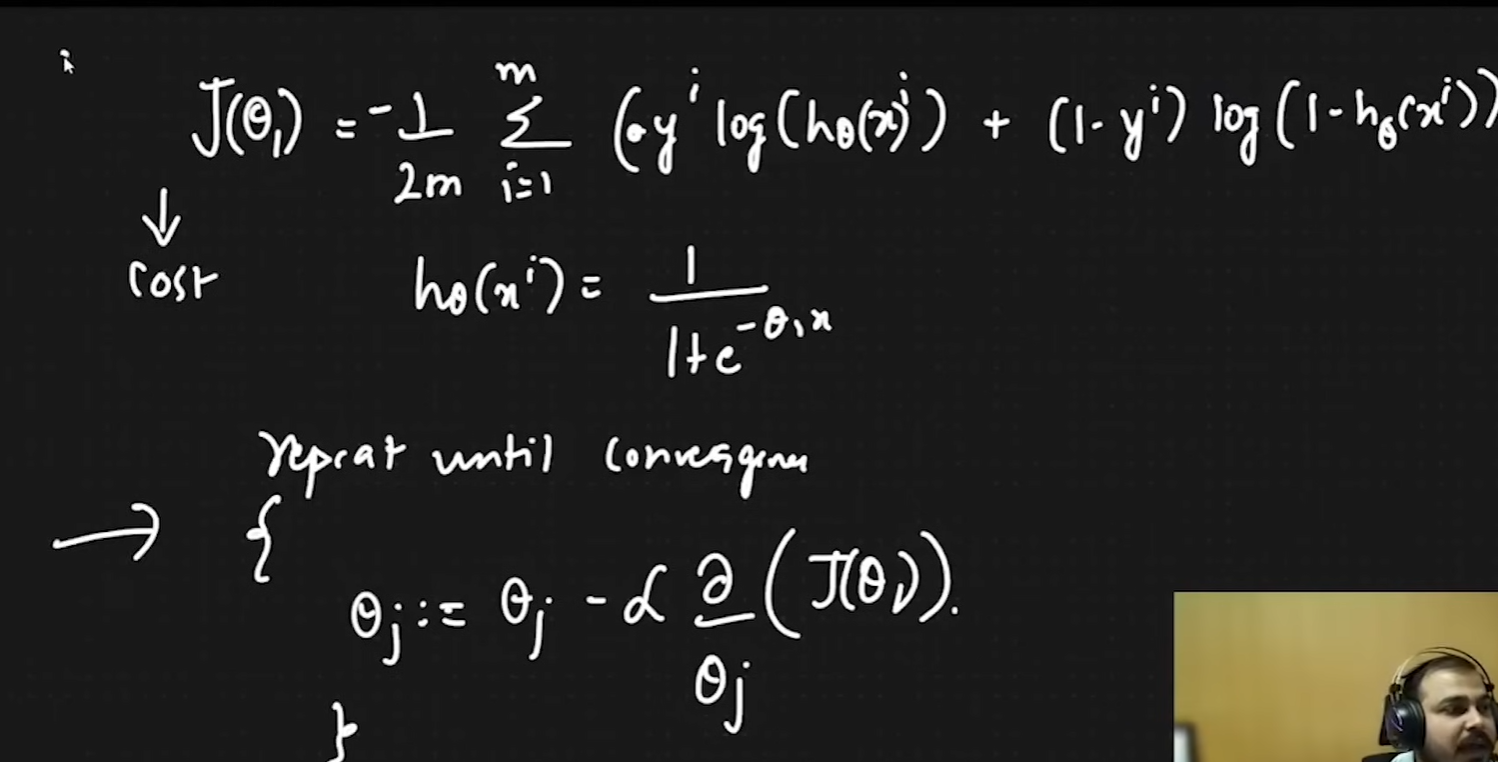 J(θ₁) = -1/2m Σ_{i=1}^{m} (y^i log(h_θ(x)^i) + (1-y^i) log(1-h_θ(x^i))
↓
cost
h_θ(x^i) = 1/(1+e^{-θ₁x})
repeat until convergence
→ {
θ_j := θ_j - α ∂/θ_j (J(θ₁)).
}